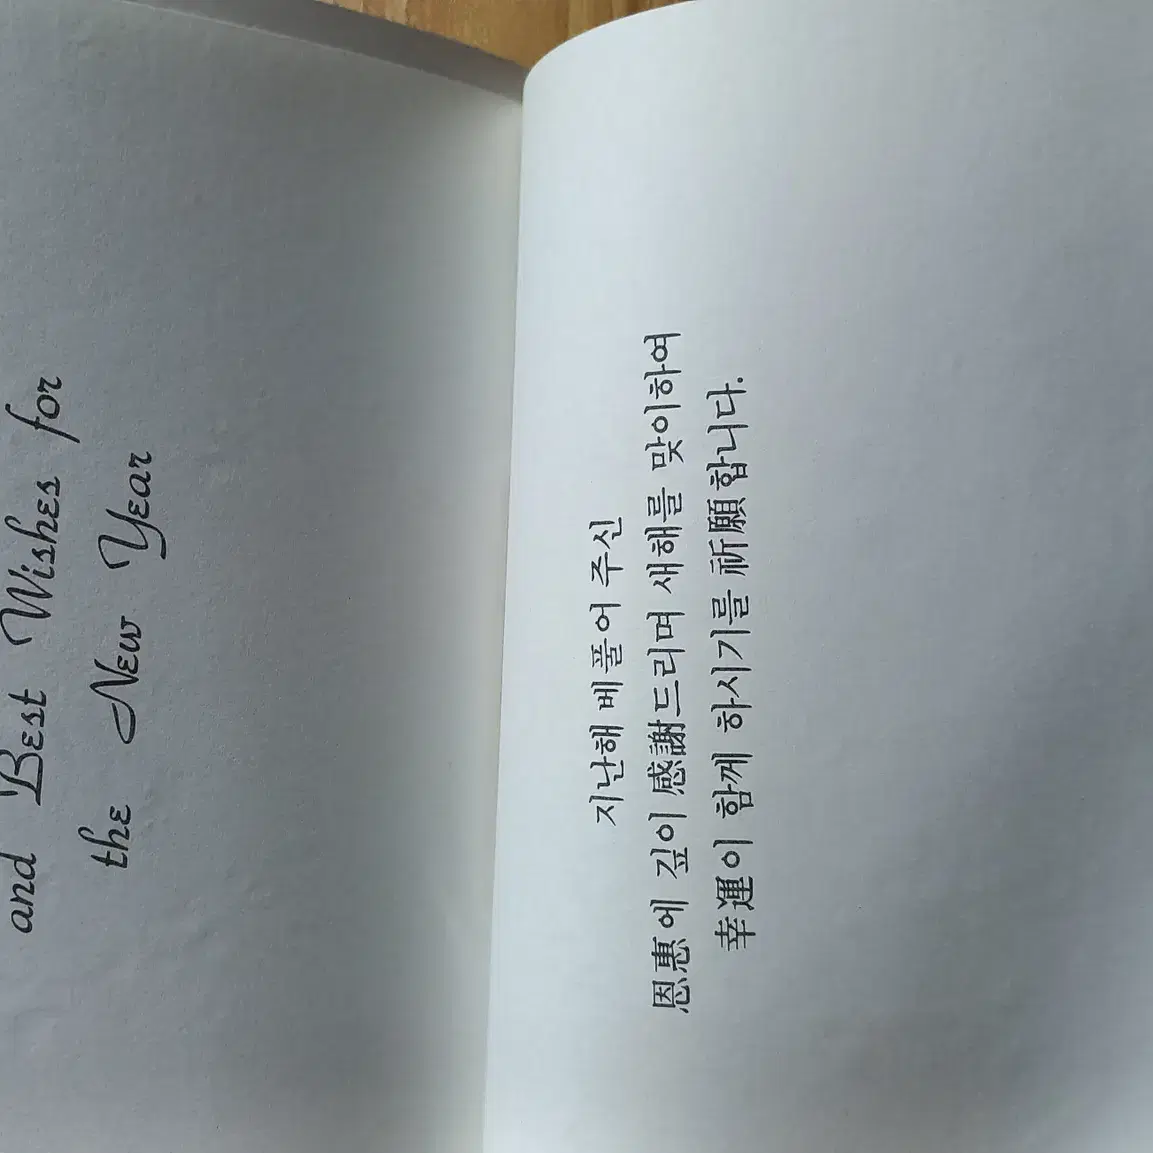 and Best Wishes for
the New Year
지난해 베풀어 주신
恩惠에 깊이 感謝드리며 새해를 맞이하여
幸運이 함께 하시기를 祈願합니다.